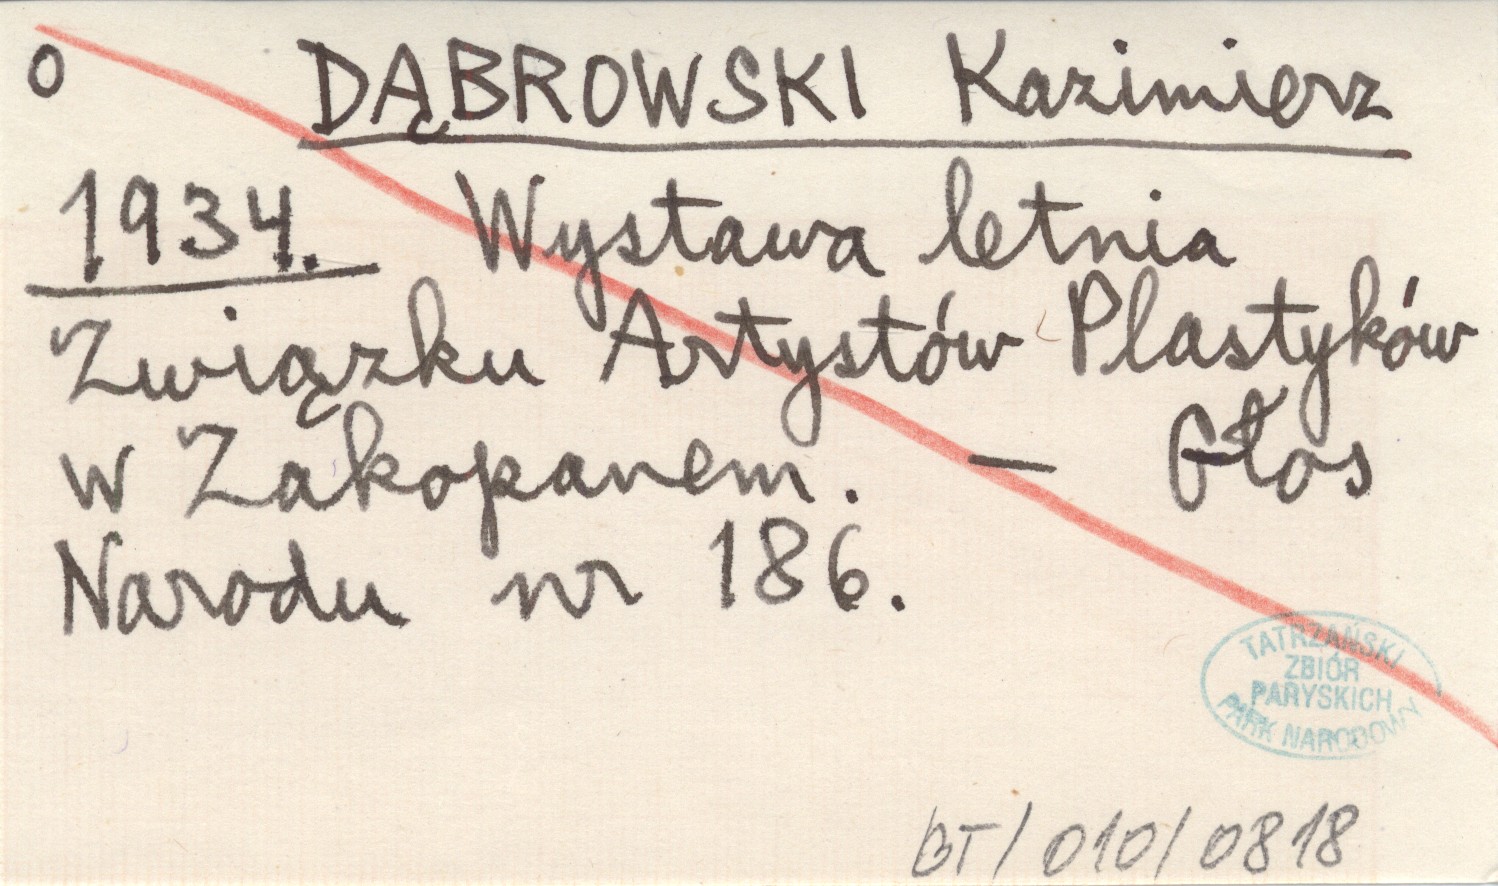 o DĄBROWSKI Kazimierz
1934. Wystawa letnia
Związku Artystów Plastyków
w Zakopanem. — Głos
Narodu nr 186.
TATRZAŃSKI
ZBIÓR
PARYSKICH
PARK NARODOWY
BT/010/0818